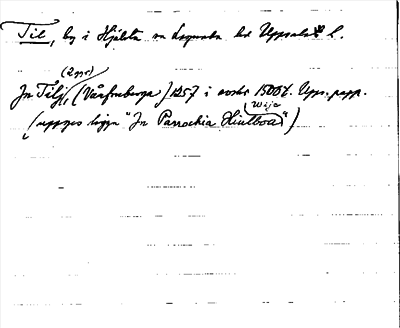 Til, by i Hjälsta sn Lagunda hd Uppsala l.
(2 ggr)
In Tilj, (Vårfruberga) 1257 i avskr 1500 t. Upps. papp.
Wije
(uppges ligga "In Parrochia Hiulboa")